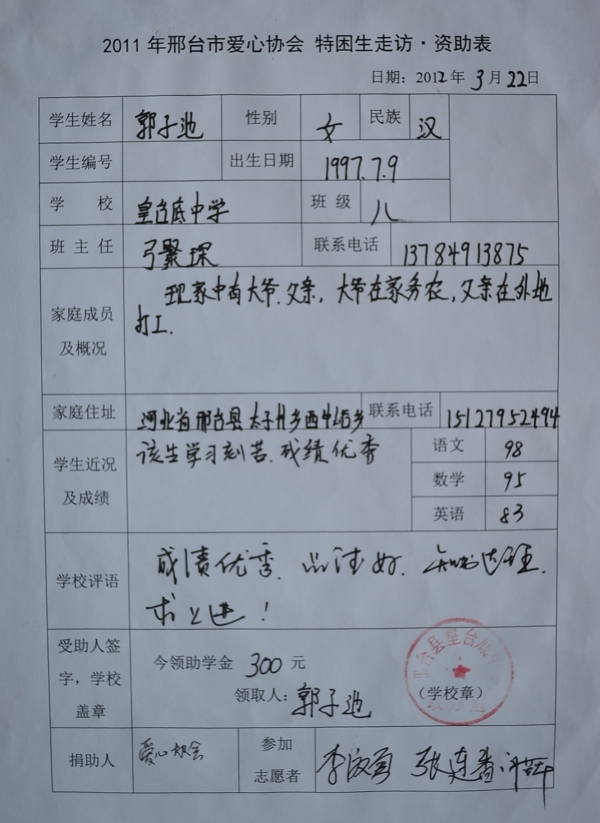 2011年邢台市爱心协会 特困生走访·资助表
日期：2012年3月22日
学生姓名 郭子池 性别 女 民族 汉
学生编号 出生日期 1997.7.9
学 校 皇台底中学 班 级 八
班 主 任 弓聚琛 联系电话 13784913875
家庭成员及概况 现家中有大爷.父亲，大爷在家务农，父亲在外地
打工.
家庭住址 河北省邢台县太子井乡西 联系电话 15127952494
学生近况及成绩 该生学习刻苦.成绩优秀
语文 98
数学 95
英语 83
学校评语 成绩优秀.品德好.知书达理.
求上进！
受助人签字，学校盖章 今领助学金 300 元
领取人：郭子池 （学校章）
捐助人 爱心协会 参加志愿者 李 张连